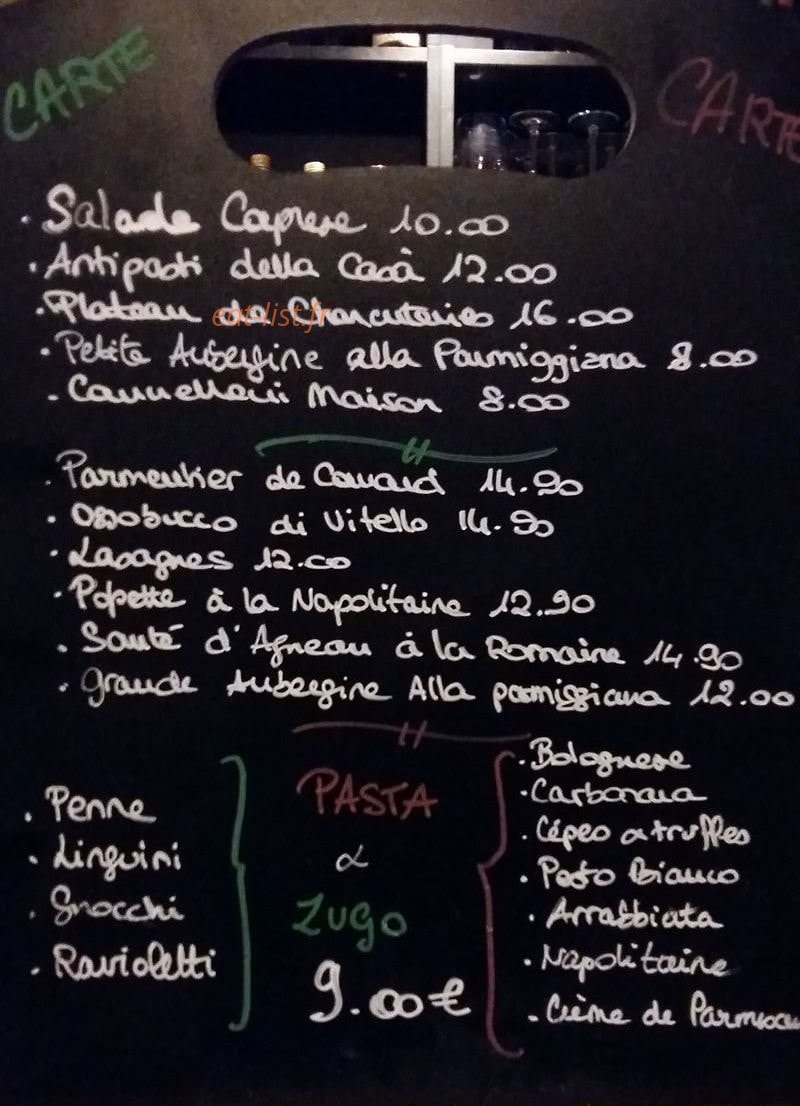 CARTE
CARTE
. Salade Caprese 10.00
. Antipasti della Casà 12.00
. Plateau de Charcuteries 16.00
eat-list.fr
. Petite Aubergine alla Parmiggiana 8.00
. Cannelleni Maison 8.00
. Parmentier de Canard 14.90
. Ossobucco di Vitello 14.90
. Lasagnes 12.00
. Polpette à la Napolitaine 12.90
. Sauté d'Agneau à la Romaine 14.90
. Grande Aubergine Alla parmiggiana 12.00
. Penne
. Linguini
. Gnocchi
. Ravioletti
PASTA
&
ZUGO
9.00€
. Bolognese
. Carbonara
. Cépes & truffes
. Pesto Bianco
. Arrabbiata
. Napolitaine
. Crème de Parmesan